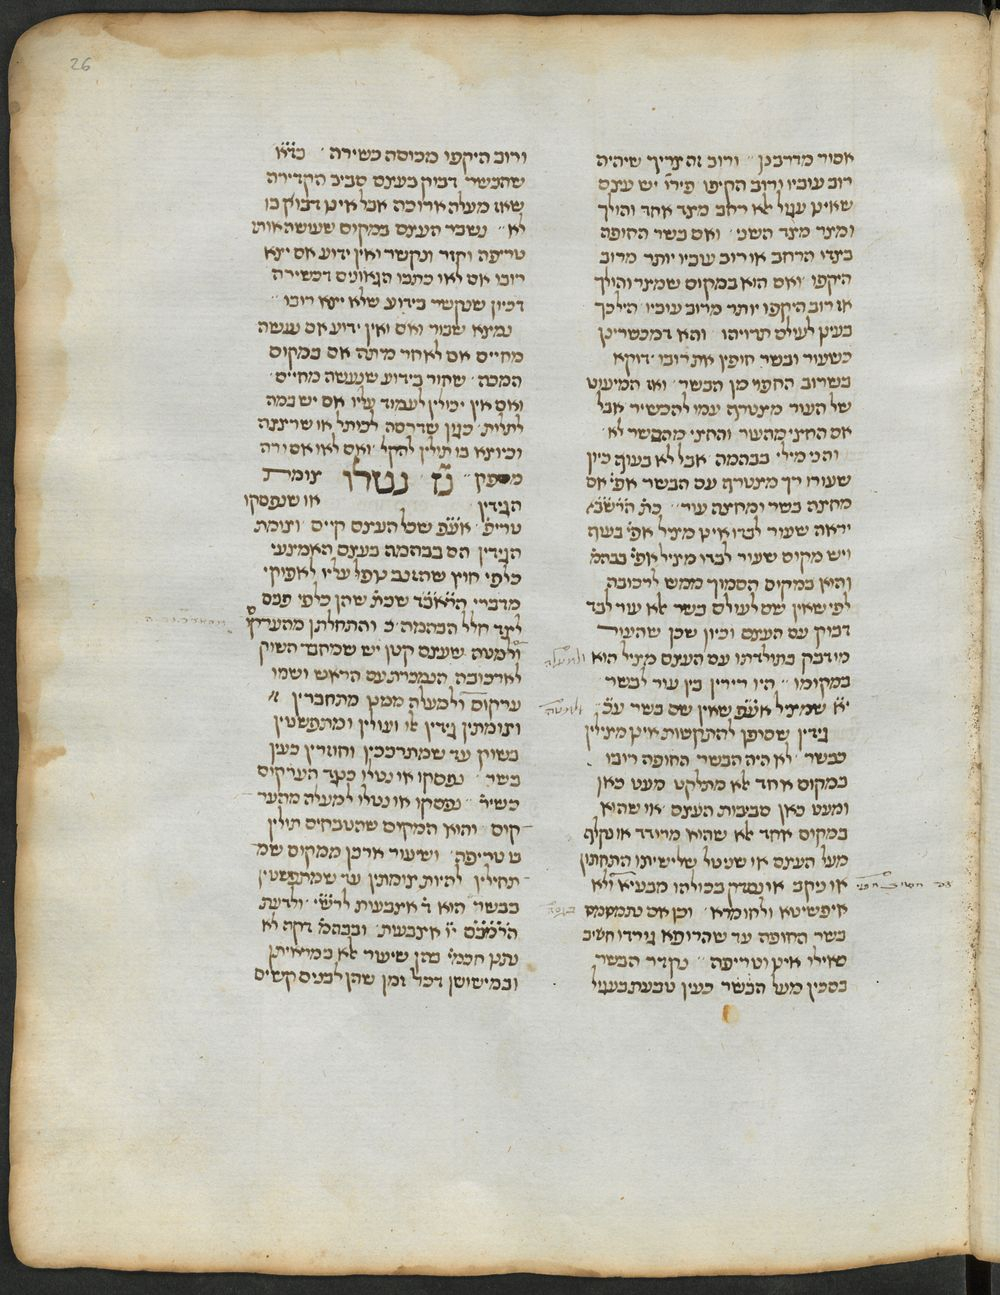 26
אסור מדרבנן ורוב זה צריך שיהיה
רוב עוביו ורוב הקיפו פיר' יש עצם
שאינו עגול אלא רחב מצד אחד והולך
ומיצר מצד השני ואם בשר החופה
בצדו הרחב או רוב עוביו יותר מרוב
היקפו ואם הוא במקום שמיצר והולך
אז רוב היקפו יותר מרוב עוביו הילכך
בעינן לעולם תרויהו והא דמכשרינן
כשעור ובשר חופין את רובו דוקא
כשרוב החפוי מן הבשר ואז המיעוט
של העור מצטרף עמו להכשיר אבל
אם החצי מהעור והחצי מהבשר לא
והני מילי בבהמה אבל לא בעוף כיון
שעורו רך מצטרף עם הבשר אפי' אם
מחצה בשר ומחצה עור כת' הרשב"א
יראה שעור לבדו אינו מציל אפי' בעוף
ויש מקום שעור לבדו מציל אפי' בבהמ'
והוא במקום הסמוך ממש לרכובה
לפי שאין שם לעולם בשר אלא עור לבד
דבוק עם העצם וכיון שכן שהעור
מודבק בתולדתו עם העצם מציל הוא
ולמעלה
במקומו היו דירין בין עור לבשר
יא שמציל אע"פ שאין שם בשר
ולמטה
גידין שסופן להתקשות אינן מצילין
כבשר לא היה הבשר החופה רובו
במקום אחד אלא מתלקט מעט כאן
ומעט כאן סביבות העצם או שהוא
במקום אחד אלא שהוא מרודד או נקלף
מעל העצם או שניטל שלישיתו התחתון
או ניקב או נסדק בכולהו מבעיא ולא
איפשיטא ולחומרא וכן אם נתמסמס
בשר החופה עד שהרופא גוררו חשיב
כאילו אינו וטריפה נקדר הבשר
בסכין מעל הבשר כעין טבעת בעגול
ורוב היקפו מכוסה כשירה
שהבשר דבוק בעצם סביב הקדירה
שאז מעלה ארוכה אבל אינו דבוק בו
לא נשבר העצם במקום שעושה אותו
טריפה וקזר ונקשר ואין ידוע אם יצא
רובו אם לאו כתבו הגאונים דכשירה
דכיון שנקשר בידוע שלא יצא רובו
נמצא שבור ואם ואין ידוע אם נעשה
מחיים אם לאחר מיתה אם במקום
המכה שחור בידוע שנעשה מחיים
ואם אין יכולין לעמוד עליו אם יש במה
לתלות כגון שדרסה לכותל או שריצצה
וכיוצא בו תולין להקל ואם לאו אסורה
מספק נז נטלו צומת
הגידין או שנפסקו
טריפ' אע"פ שכל העצם קיים וצומת
הגידין הם בבהמה בעצם האמצעי
כלפי חוץ שהזנב נופל עליו לאפוקי
מדברי הראב"ד שכת' שהן כלפי פנים
לצד חלל הבהמה והתחלתן מהערקום
ולמטה שעצם קטן יש שמחבר השוק
לארכובה הנמכרת עם הראש ושמו
ערקום ולמעלה ממנו מתחברין
וצומתין גידין אלו ועולין ומתפשטין
בשוק עד שמתרככין וחוזרין כעין
בשר נפסקו או נטלו כנגד הערקום
כשיר' נפסקו או נטלו למעלה מהער
קום והוא המקום שהטבחים תולין
בו טריפה ושיעור ארכן ממקום שמ
תחילין להיות צומתין עד שמתפשטין
בבשר הוא ד' אצבעות לרש"י ולדעת
הרמב"ם יו אצבעות ובבהמ' דקה לא
נתנו חכמי' בהן שיעור אלא במראיתן
ובמישושן דכל זמן שהן לבנים קשים